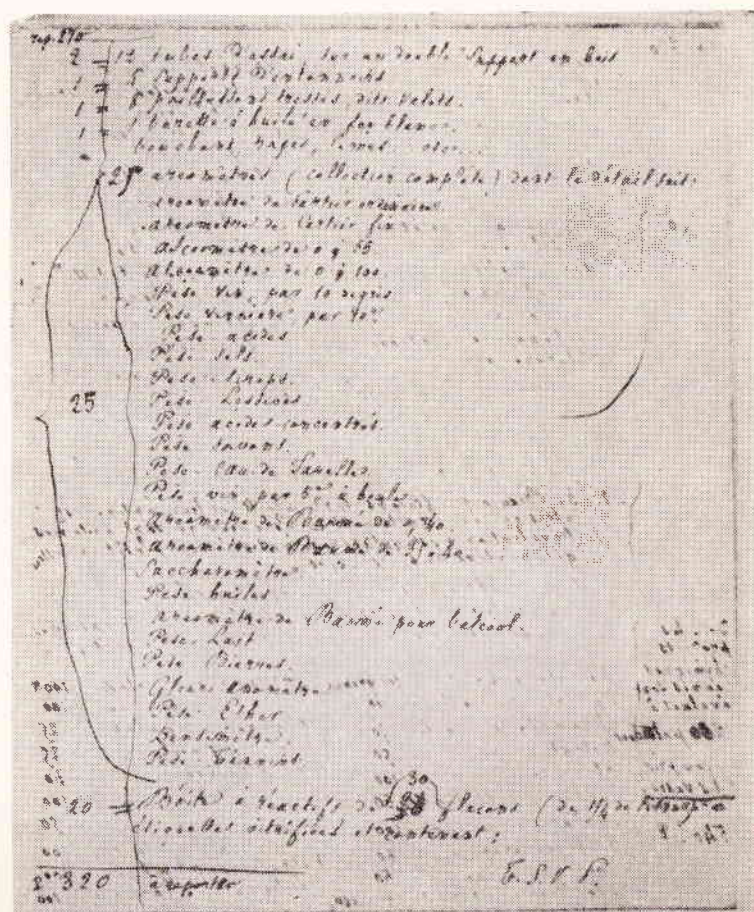 rep. 270
2 = 12 tubes d'essai sur un double support en bois
1 = 5 supports d'entonnoirs
1 = 5 paillassons tressés, dits valets.
1 = 1 burette à huile en fer blanc
1 bouchons, rages, limes, etc..
25 areomètres (collection complète) dont le détail suit:
areomètre de Cartier ordinaire
areomètre de Cartier fin
alcoomètre de 0 à 55
alcoomètre de 0 à 100
Pèse vin, par 10 degrés
Pèse vinaigre par 10
Pèse acides
Pèse sels.
Pèse sirops.
25 Pèse Lessives
Pèse acides concentrés.
Pèse savons.
Pèse Eau de Javelles.
Pèse vin par 5 à boule
areomètre de Baumé de 0 à 40
areomètre de Baumé de
Saccharomètre
Pèse huiles
areomètre de Baumé pour l'alcool.
Pèse Lait
Pèse Bierres.
Gluco aromètre
Pèse Ether
Densimètre.
Pèse Vernis
20 = Boite à réactifs de 30 flacons (de 1/4 de litre)
étiquettes vitrifiées et contenant:
320 à reporter
T. S. V. P.